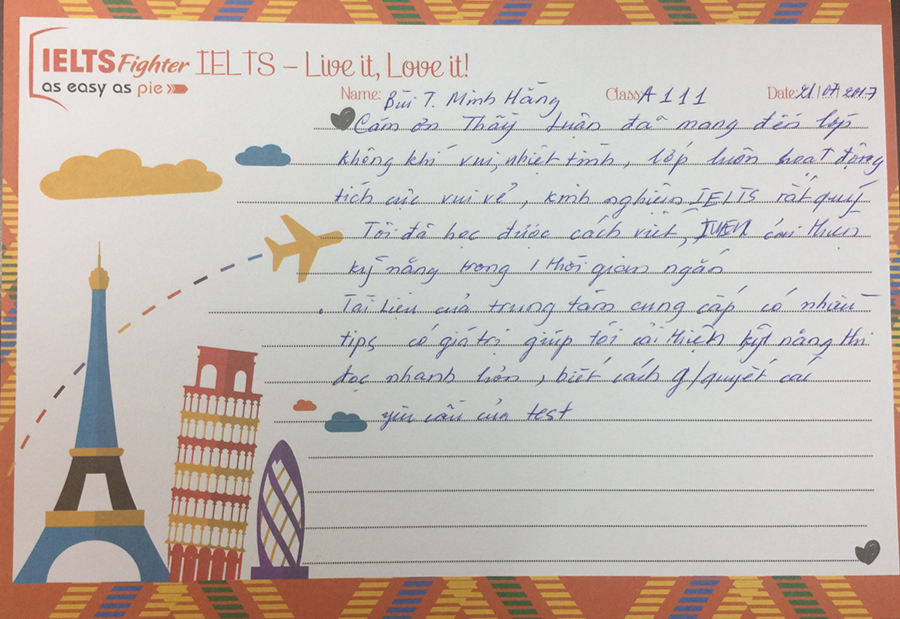 IELTS Fighter IELTS – Live it, Love it!
as easy as pie
Name: Bùi T. Minh Hằng Class: A111 Date: 21/07/2017
Cám ơn Thầy Luận đã mang đến lớp
không khí vui, nhiệt tình, lớp luôn hoạt động
tích cực vui vẻ, kinh nghiệm IELTS rất quý
Tôi đã học được cách viết, cải thiện
kỹ năng trong 1 thời gian ngắn
. Tài liệu của trung tâm cung cấp có nhiều
tips có giá trị giúp tôi cải thiện kỹ năng thi
đọc nhanh hơn, biết cách g/quyết các
yêu cầu của test